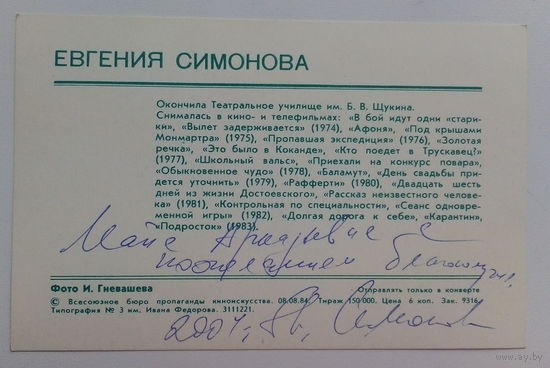 ЕВГЕНИЯ СИМОНОВА
Окончила Театральное училище им. Б. В. Щукина.
Снималась в кино- и телефильмах: «В бой идут одни «стари-
ки», «Вылет задерживается» (1974), «Афоня», «Под крышами
Монмартра» (1975), «Пропавшая экспедиция» (1976), «Золотая
речка», «Это было в Коканде», «Кто поедет в Трускавец?»
(1977), «Школьный вальс», «Приехали на конкурс повара»,
«Обыкновенное чудо» (1978), «Баламут», «День свадьбы при-
дется уточнить» (1979), «Рафферти» (1980), «Двадцать шесть
дней из жизни Достоевского», «Рассказ неизвестного челове-
ка» (1981), «Контрольная по специальности», «Сеанс одновре-
менной игры» (1982), «Долгая дорога к себе», «Карантин»,
«Подросток» (1983).
Майе Аркадьевне с
пожеланием
Фото И. Гневашева
Отправлять только в конверте
© Всесоюзное бюро пропаганды киноискусства. 08.08.84. Тираж 150 000. Цена 6 коп. Зак. 9316.
Типография № 3 им. Ивана Федорова. 3111221.
2004 г. Симонова
www.ay.by